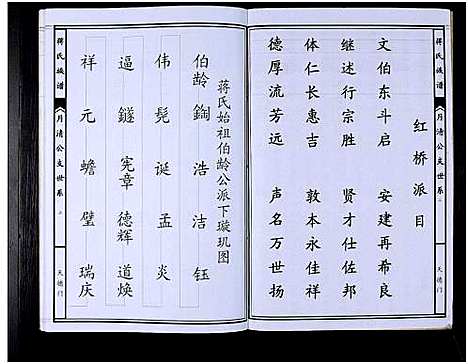 蒋氏族谱
《月清公支世系》
天德门
红桥派目
文伯东斗启 安建再希良
继述行宗胜 贤才仕佐邦
体仁长惠吉 敦本永佳祥
德厚流芳远 声名万世扬
蒋氏始祖伯龄公派下璇玑图
伯龄 鍧 浩 洁 钰
伟 髡 诞 孟 炎
逼 鐩 宪章 德辉 道焕
祥 元 蟾 璧 瑞庆
蒋氏族谱
《月清公支世系》
天德门